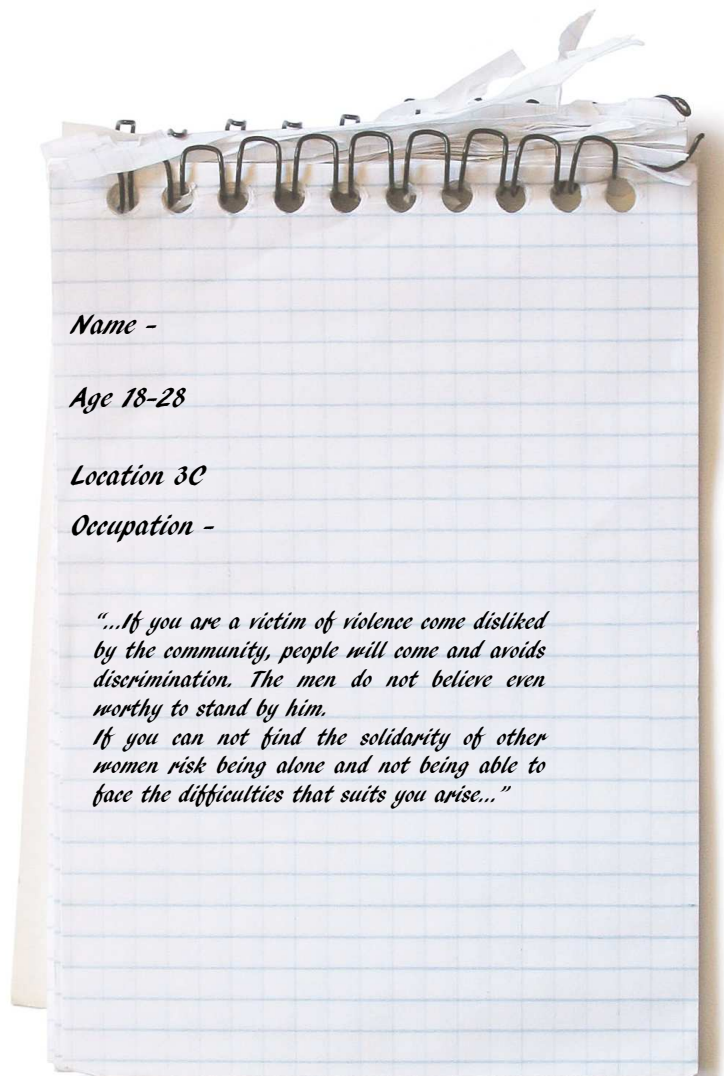 Name -
Age 18-28
Location 3C
Occupation -
"...If you are a victim of violence come disliked
by the community, people will come and avoids
discrimination. The men do not believe even
worthy to stand by him.
If you can not find the solidarity of other
women risk being alone and not being able to
face the difficulties that suits you arise..."